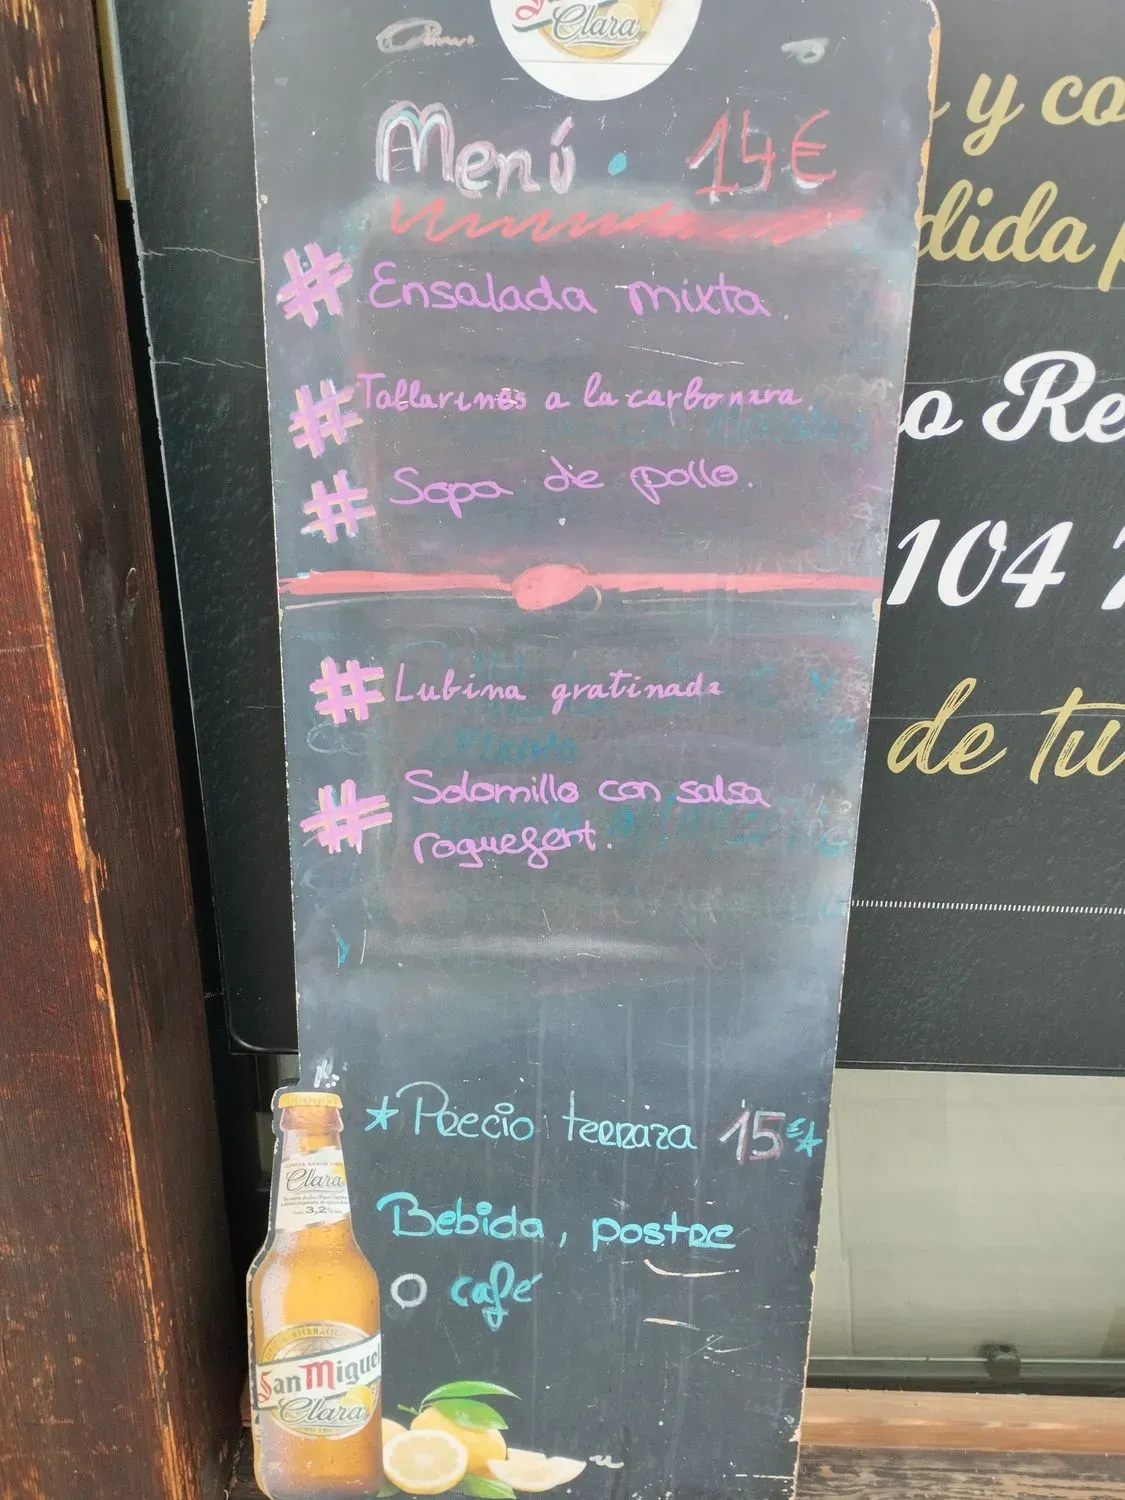 Clara
Menú · 14€
# Ensalada mixta.
# Tallarines a la carbonara
# Sopa de pollo.
# Lubina gratinada
# Solomillo con salsa
roquefort.
* Precio terraza 15€*
Bebida, postre
O café
Clara
3,2%
San Miguel
Clara
y co
dida
o Re
104
de tu